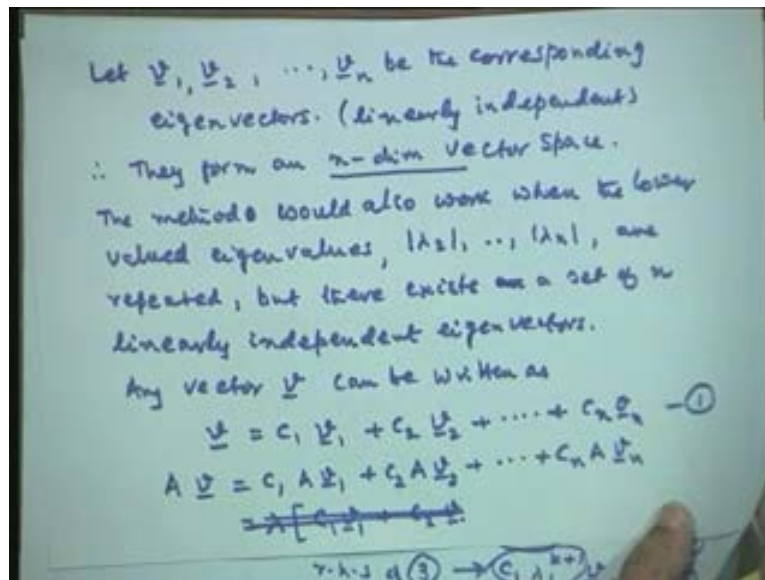 Let v₁, v₂, ..., vₙ be the corresponding
eigenvectors. (linearly independent)
∴ They form an n-dim vector space.
The methods would also work when the lower
valued eigenvalues, |λ₂|, .., |λₙ|, are
repeated, but there exists a set of n
linearly independent eigenvectors.
Any vector v can be written as
v = c₁ v₁ + c₂ v₂ + ..... + cₙ vₙ - ①
A v = c₁ A v₁ + c₂ A v₂ + ... + cₙ A vₙ
= λ [ c₁ v₁ + c₂ v
r.h.s of ③ → c₁ λ₁ᵏ⁺¹ v